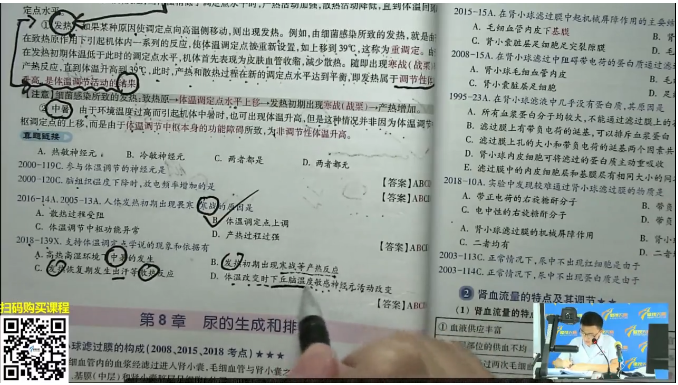 定点水平。
①发热 如果某种原因使调定点向高温侧移动,则出现发热。例如,由细菌感染所致的发热,就是由
在致热原作用下引起机体内一系列的反应,使体温调定点被重新设置,如上移到39℃,这称为重调定。由
在发热初期体温低于此时的调定点水平,机体首先表现为皮肤血管收缩,减少散热。随即出现寒战(战栗
产热反应,直到体温升高到39℃,此时,产热和散热过程在新的调定点水平达到平衡,即发热属于调节性体
升高,是体温调节活动的结果
【注意】细菌感染所致的发热:致热原→体温调定点水平上移→发热初期出现寒战(战栗)→产热增加。
②中暑 由于环境温度过高而引起机体中暑时,也可出现体温升高,但是这种情况并非因为体温调节
枢调定点的上移,而是由于体温调节中枢本身的功能障碍所致,为非调节性体温升高。
真题链接
A. 热敏神经元 B. 冷敏神经元 C. 两者都是 D. 两者都无
2000-119C. 参与体温调节的神经元是
2000-120C. 脑组织温度下降时,放电频率增加的是
【答案】ABCD
【答案】ABCD
2016-14A. 2005-13A. 人体发热初期出现畏寒、寒战的原因是
A. 散热过程受阻 B. 体温调定点上调
C. 体温调节中枢功能异常 D. 产热过程过强
【答案】ABCD
2018-139X. 支持体温调定点学说的现象和依据有
A. 高热高湿环境下中暑的发生 B. 发热初期出现寒战等产热反应
C. 发热恢复期发生出汗等散热反应 D. 体温改变时下丘脑温度敏感神经元活动改变
【答案】ABCD
第8章 尿的生成和排
球滤过膜的构成(2008、2015、2018 考点)★★★
细血管内的血浆经滤过进入肾小囊,毛细血管与肾小囊之
2015-15A. 在肾小球滤过膜中起机械屏障作用的主要
A. 毛细血管内皮下基膜
C. 肾小囊脏层细胞足突裂隙膜
2008-15A. 在肾小球滤过膜中阻碍带电荷的蛋白质滤过
A. 肾小球毛细血管内皮
C. 肾小囊脏层足细胞
1995-23A. 在肾小球滤液中几乎没有蛋白质,其原因是
A. 所有血浆蛋白分子均较大,不能通过滤过膜上的
B. 滤过膜上有带负电荷的涎蛋,可以排斥血浆蛋白
C. 滤过膜上孔的大小和带负电荷的涎蛋两个因素共
D. 肾小球内皮细胞可将滤过的蛋白质主动重吸收
E. 滤过膜中的内皮细胞层和基膜层有相同大小的
2018-10A. 实验中发现较难通过肾小球滤过膜的物质是
A. 带正电荷的右旋糖酐分子
C. 电中性的右旋糖酐分子
A. 肾小球滤过膜的机械屏障作用
C. 二者均有
2003-113C. 正常情况下,尿中不出现红细胞是由于
2003-114C. 正常情况下,尿中不出现蛋白质是由于
2 肾血流量的特点及其调节★★
(1) 肾血流量的特点
①血液供应丰富
部位的供血不均
扫码购买课程